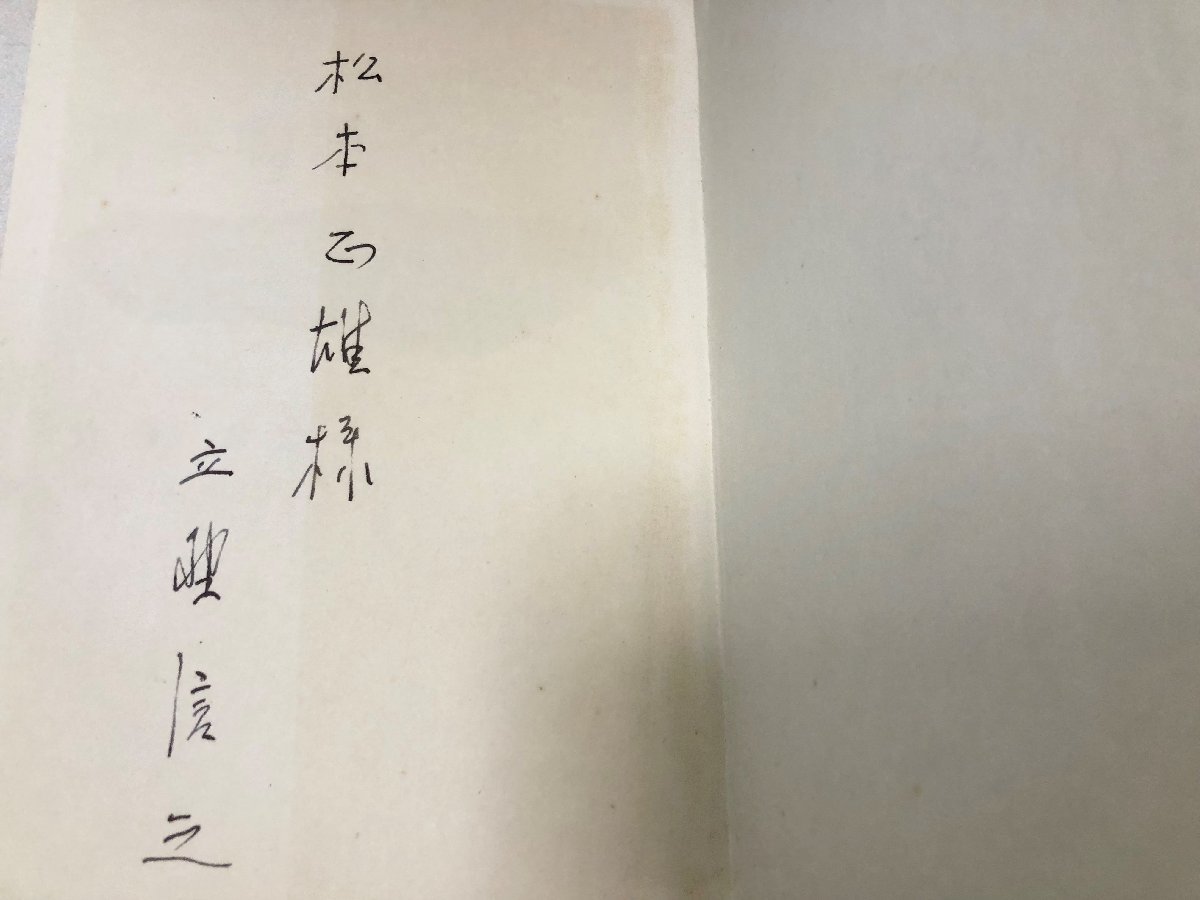 松本正雄様
立野信之